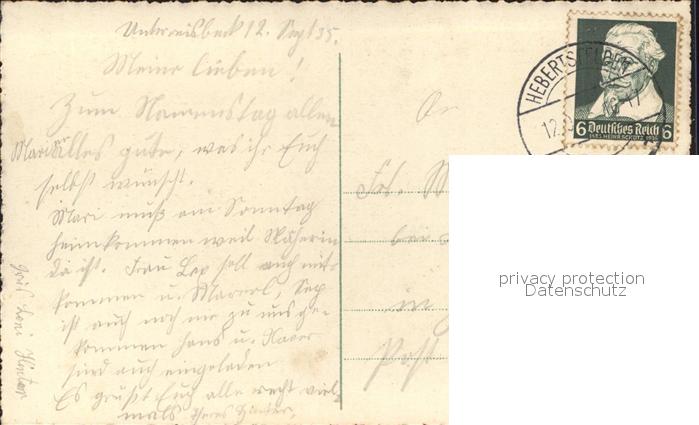 Unterreisbeck 12. Sept 35.
Meine Lieben!
Zum Namenstag allen
Marie alles gute, was ihr Euch
selbst wünscht.
Mari muß am Sonntag
heimkommen weil Näherin
da ist. Frau Lex soll auch mit
kommen u. Marerl, Sep
ist auch noch nie zu uns ge-
kommen Hans u. Xaver
sind auch eingeladen
Es grüßt Euch alle recht viel
mals Theres Hinter,
An
Frl. M
bei
in
Post
HEBERTSFELDEN
12.
6 Deutsches Reich 6
1585 HEINR. SCHÜTZ 1935
privacy protection
Datenschutz